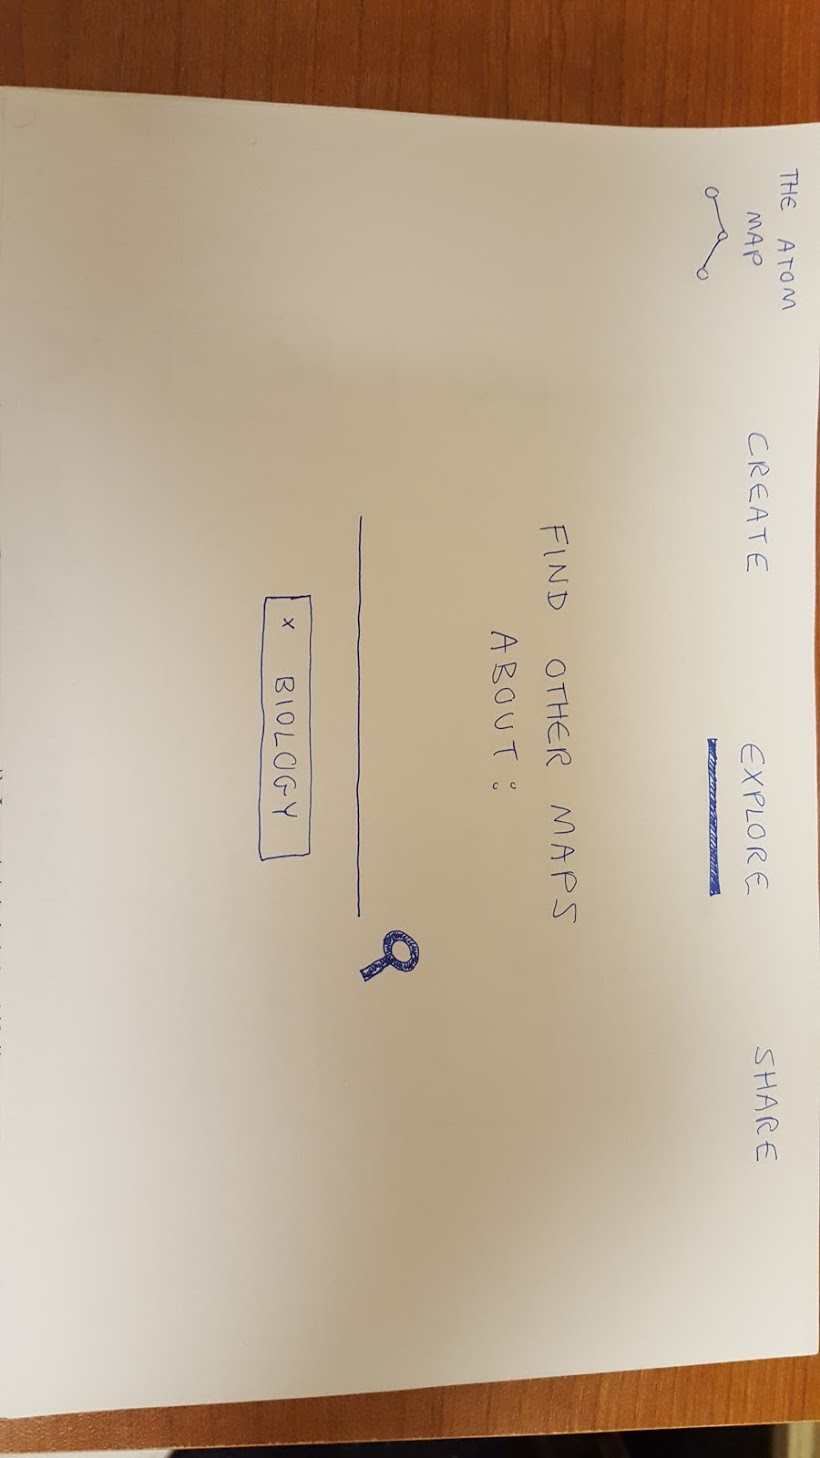 THE ATOM
MAP
CREATE
EXPLORE
SHARE
FIND OTHER MAPS
ABOUT:
x BIOLOGY